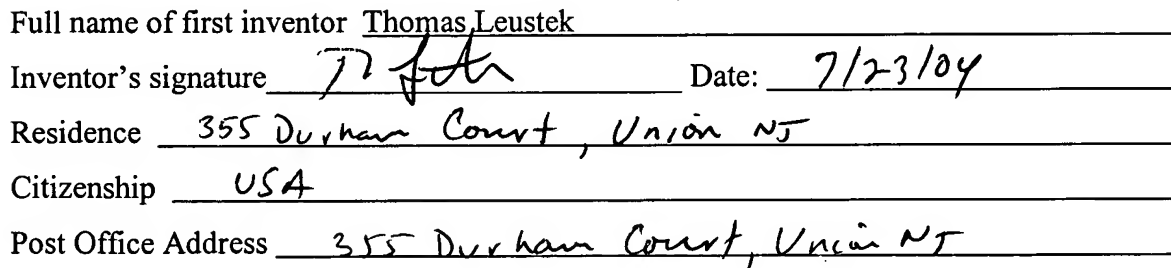 Full name of first inventor Thomas Leustek
Inventor's signature Date: 7/23/04
Residence 355 Durham Court, Union NJ
Citizenship USA
Post Office Address 355 Durham Court, Union NJ